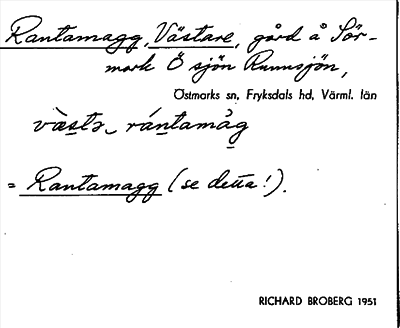 Rantamagg, Västare, gård å Sör-
mark Ö sjön Runnsjön,
Östmarks sn, Fryksdals hd, Värml. län
vàstə rántamåg
= Rantamagg (se detta!).
RICHARD BROBERG 1951